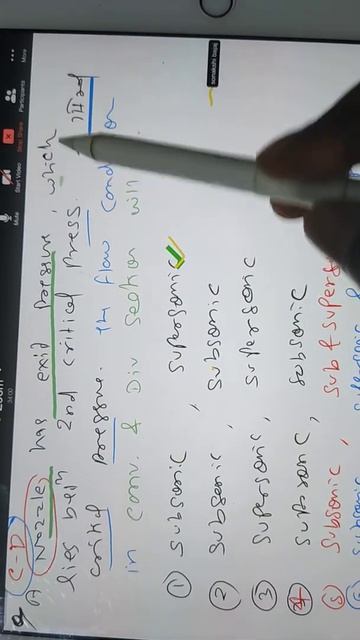 Q (C-D)
A Nozzle has exit pressure, which
lies betn 2nd critical press. IIIrd
critical pressure. The flow Condition
in Conv. & Div section will
① Subsonic, Supersonic
② Subsonic, Subsonic
③ Supersonic, Supersonic
④ Supersonic, Subsonic
⑤ Subsonic, Sub & Supers
Mute
Start Video
Stop Share
Participants
More
sonakshi bajaj